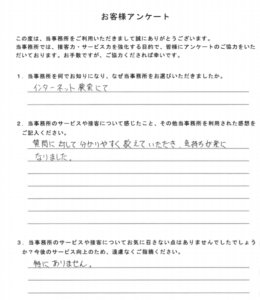 お客様アンケート
この度は、当事務所をご利用いただきまして誠にありがとうございます。
当事務所では、接客力・サービス力を強化する目的で、皆様にアンケートのご協力をいた
だいております。お手数ですが、ご協力くだされば幸いです。
1.当事務所を何でお知りになり、なぜ当事務所をお選びいただきましたか。
インターネット検索にて
2.当事務所のサービスや接客について感じたこと、その他当事務所を利用された感想を
ご記入ください。
質問に対して分かりやすく教えていただき、気持ちが楽に
なりました。
3.当事務所のサービスや接客についてお気に召さない点はありませんでしたでしょう
か?今後のサービス向上のため、遠慮なくご指摘ください。
特にありません。